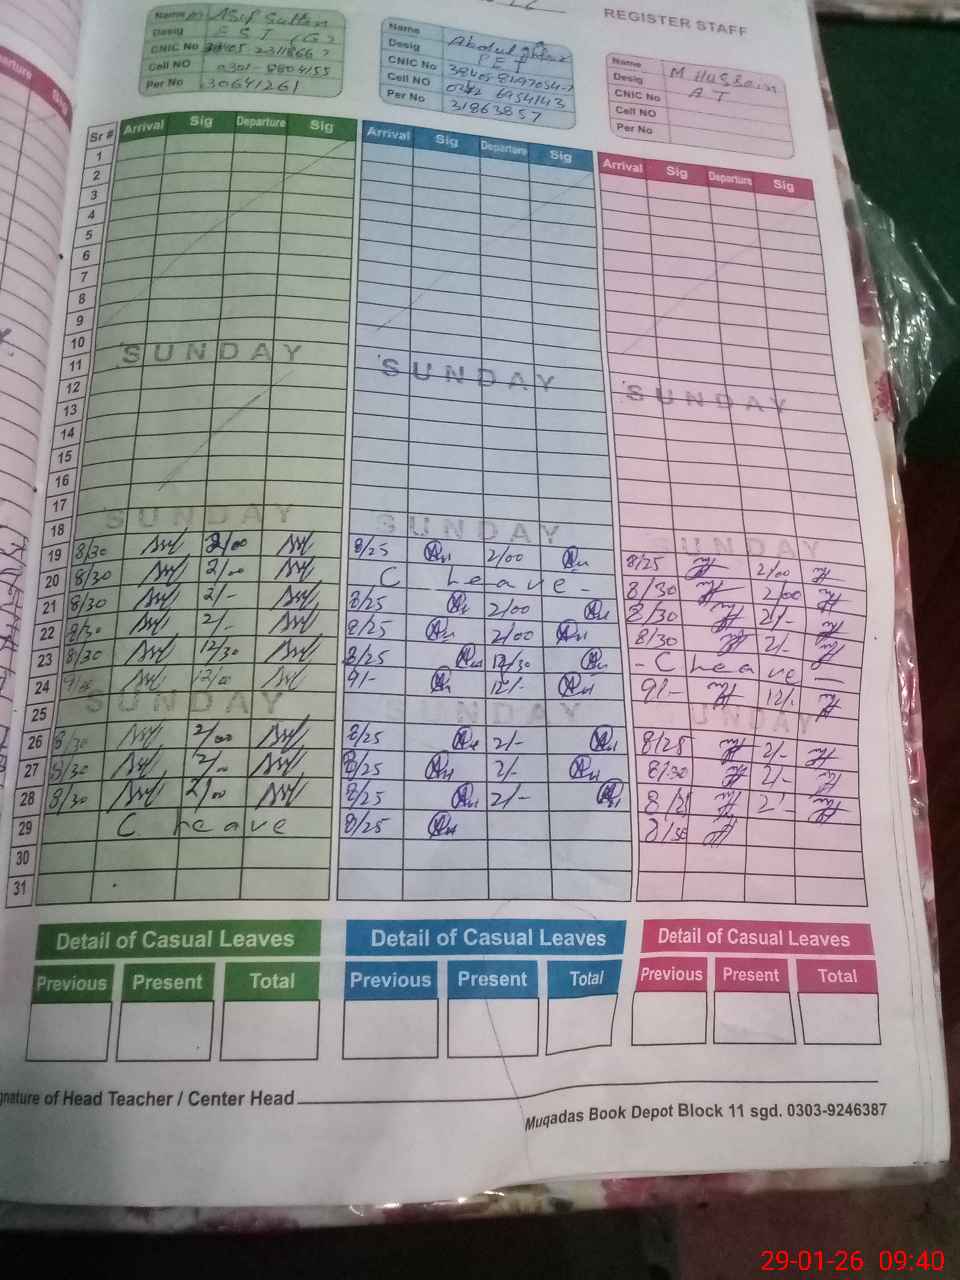 REGISTER STAFF
Name M Asif Sultan
Desig E S T (G)
CNIC No
Cell NO 0301-8804155
Per No 30641261
Name Abdul Ghfar
Desig P E T
CNIC No
Cell NO
Per No 31863857
Name M Hussain
Desig A T
CNIC No
Cell NO
Per No
Sr # Arrival Sig Departure Sig Arrival Sig Departure Sig Arrival Sig Departure Sig
1
2
3
4
5
6
7
8
9
10
11 SUNDAY SUNDAY SUNDAY
12
13
14
15
16
17
18 SUNDAY SUNDAY SUNDAY
19 8/30 2/00 8/25 2/00 8/25 2/00
20 8/30 2/00 C Leave - 8/30 2/00
21 8/30 2/- 8/25 2/00 8/30 2/-
22 8/30 2/- 8/25 2/00 8/30 2/-
23 8/30 12/30 8/25 12/30 - C Leave -
24 12/00 9/- 12/- 9/- 12/-
25 SUNDAY SUNDAY SUNDAY
26 8/30 2/00 8/25 2/- 8/25 2/-
27 8/30 2/00 8/25 2/- 8/30 2/-
28 8/30 2/00 8/25 2/- 8/25 2/-
29 C Leave 8/25 8/30
30
31
Detail of Casual Leaves Detail of Casual Leaves Detail of Casual Leaves
Previous Present Total Previous Present Total Previous Present Total
gnature of Head Teacher / Center Head
Muqadas Book Depot Block 11 sgd. 0303-9246387
29-01-26 09:40